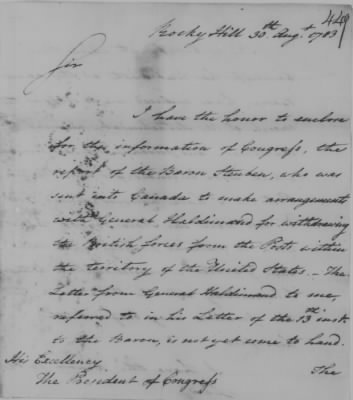 449
Rocky Hill 30th Augt 1783
Sir
I have the honor to enclose
for the information of Congress, the
report of the Baron Steuben, who was
sent into Canada to make arrangements
with General Haldimand for withdrawing
the British forces from the Posts within
the territory of the United States. – The
Letter from General Haldimand to me,
referred to in his Letter of the 13th inst.
to the Baron, is not yet come to hand.
The
His Excellency
The President of Congress